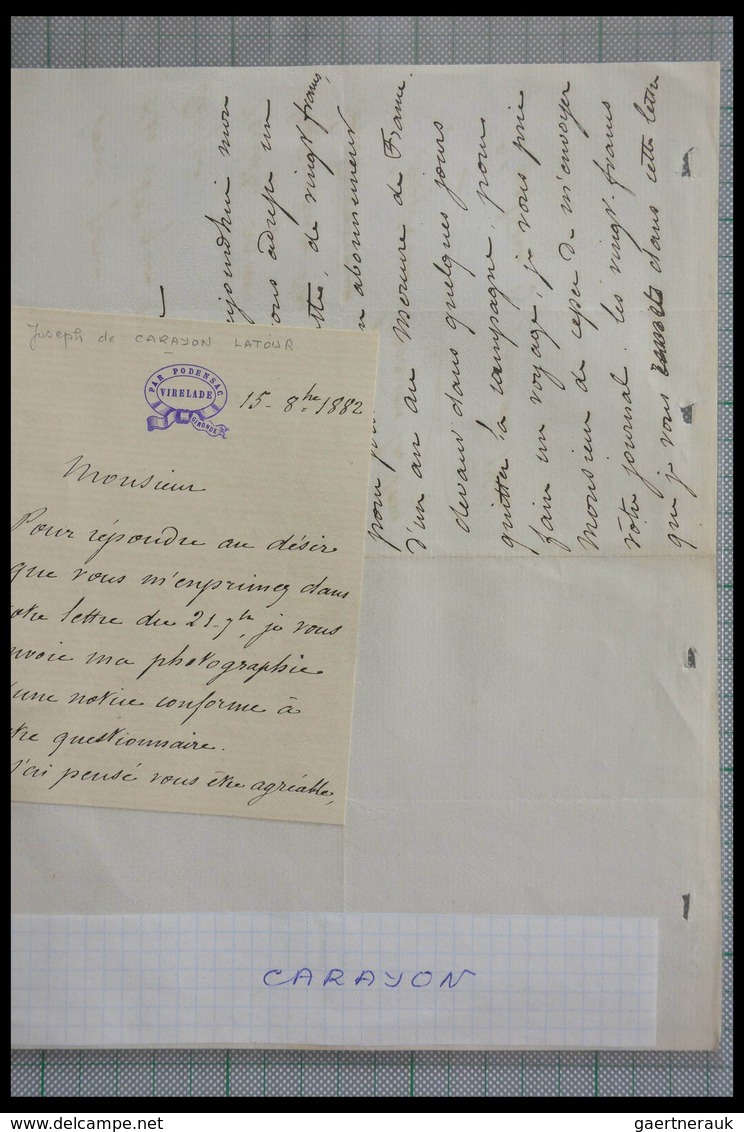 Joseph de CARAYON LATOUR
PAR PODENSAC
VIRELADE
GIRONDE
15 - 8bre 1882
Monsieur
Pour répondre au désir
que vous m'exprimez dans
otre lettre du 21 - 7bre, je vous
nvoie ma photographie
une notice conforme à
tre questionnaire.
J'ai pensé vous être agréable,
ujourd'hui mon
ous adresse un
de vingt francs,
n abonnement
pour
d'un an au Mercure de France.
devant dans quelques jours
quitter la campagne, pour
faire un voyage, je vous prie
Monsieur de cesser de m'envoyer
vôtre journal. les vingt francs
que je vous dans cette lettre
CARAYON
gaertnerauk